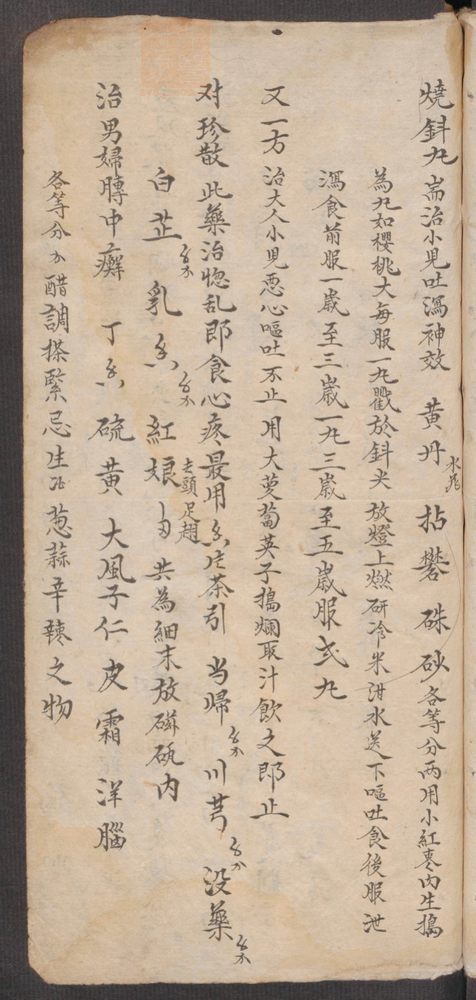 燒針丸 耑治小児吐瀉神效 黄丹水飛 枯礬 硃砂各等分两用小紅棗内生搗
為丸如櫻桃大每服一丸戳於針尖放燈上燃研冷米泔水送下嘔吐食後服泄
瀉食前服一嵗至三嵗一丸三嵗至五嵗服弍丸
又一方 治大人小児惡心嘔吐不止用大萝蔔英子搗爛取汁飲之即止
对珍散 此藥治惚乱即食心疼最用 茶引 当帰 川芎 没藥
白芷 乳香 紅娘 去頭足翅 共為細末放磁瓶内
治男婦膊中癬 丁香 硫黄 大風子仁 皮霜 洋腦
各等分 醋調搽緊忌生冷葱蒜辛辣之物